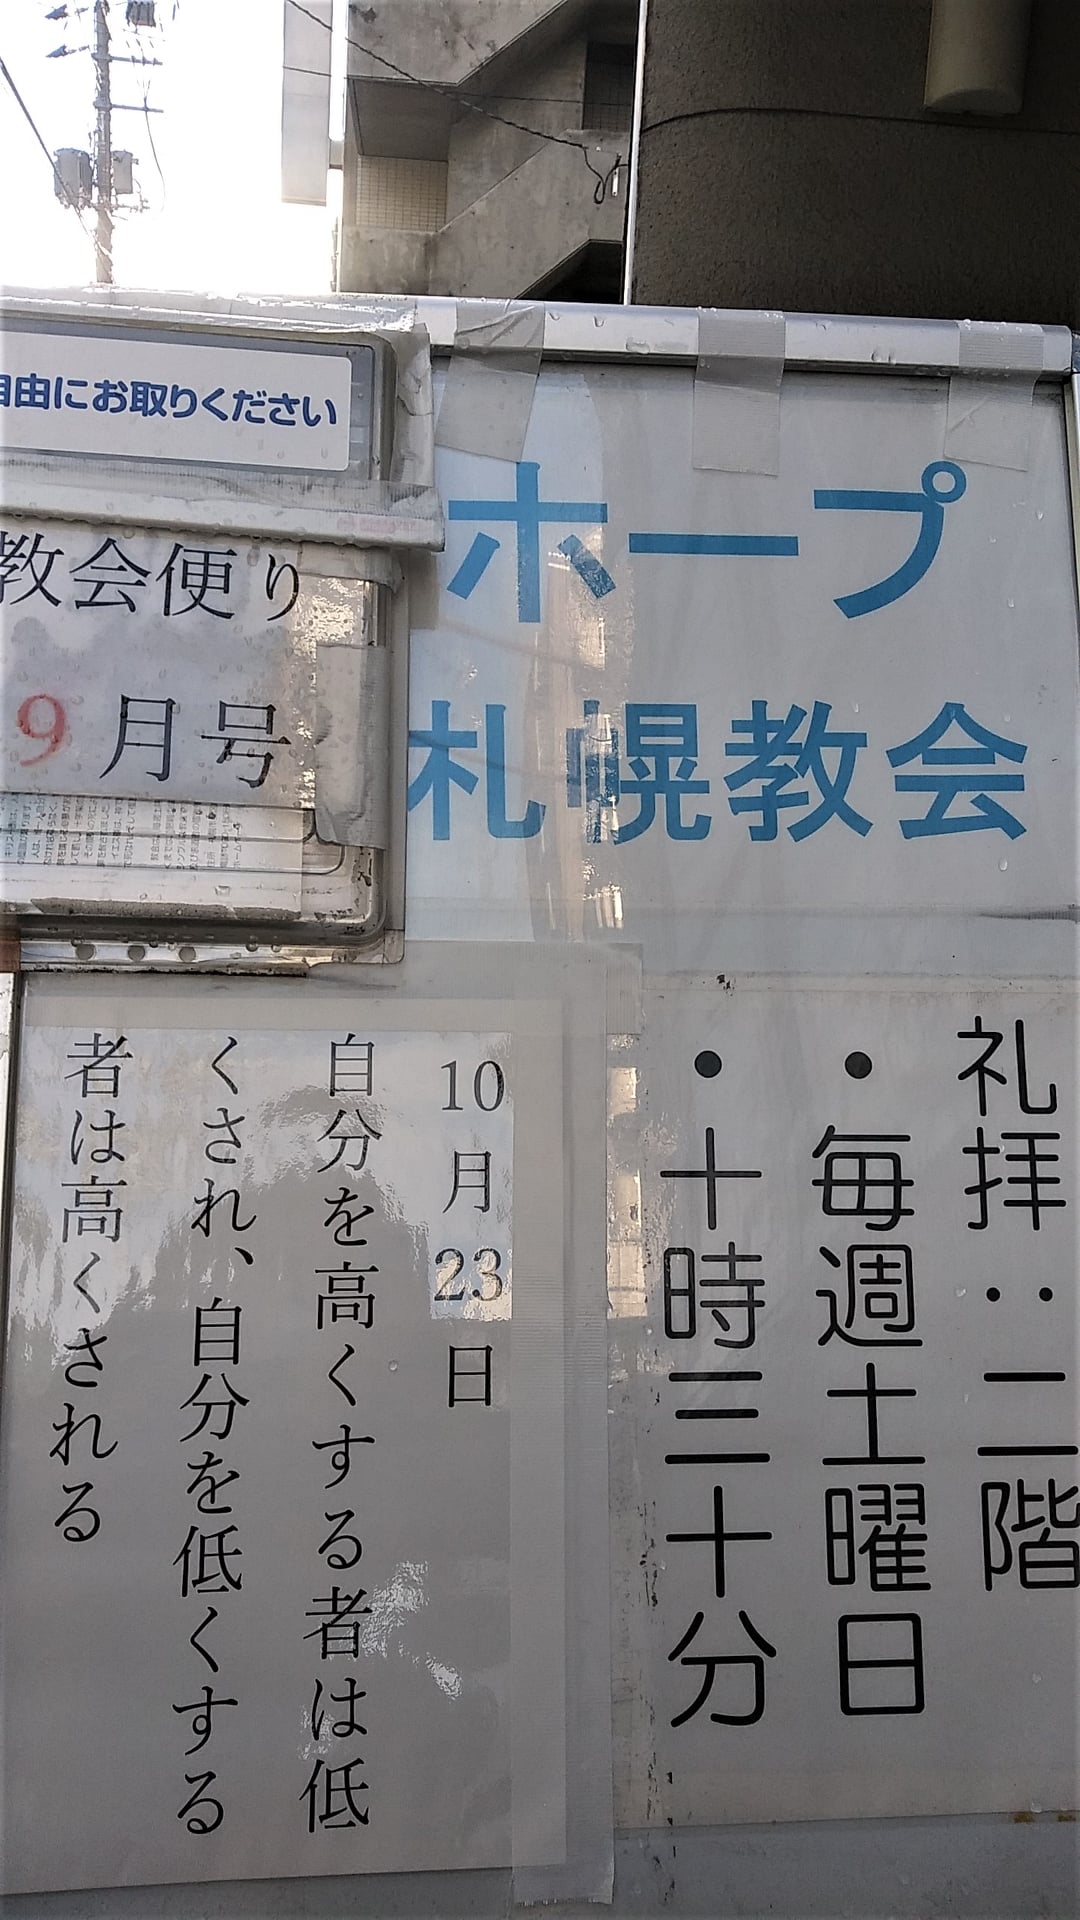 自由にお取りください
教会便り
9月号
ホープ
札幌教会
礼拝：二階
・毎週土曜日
・十時三十分
10月23日
自分を高くする者は低
くされ、自分を低くする
者は高くされる